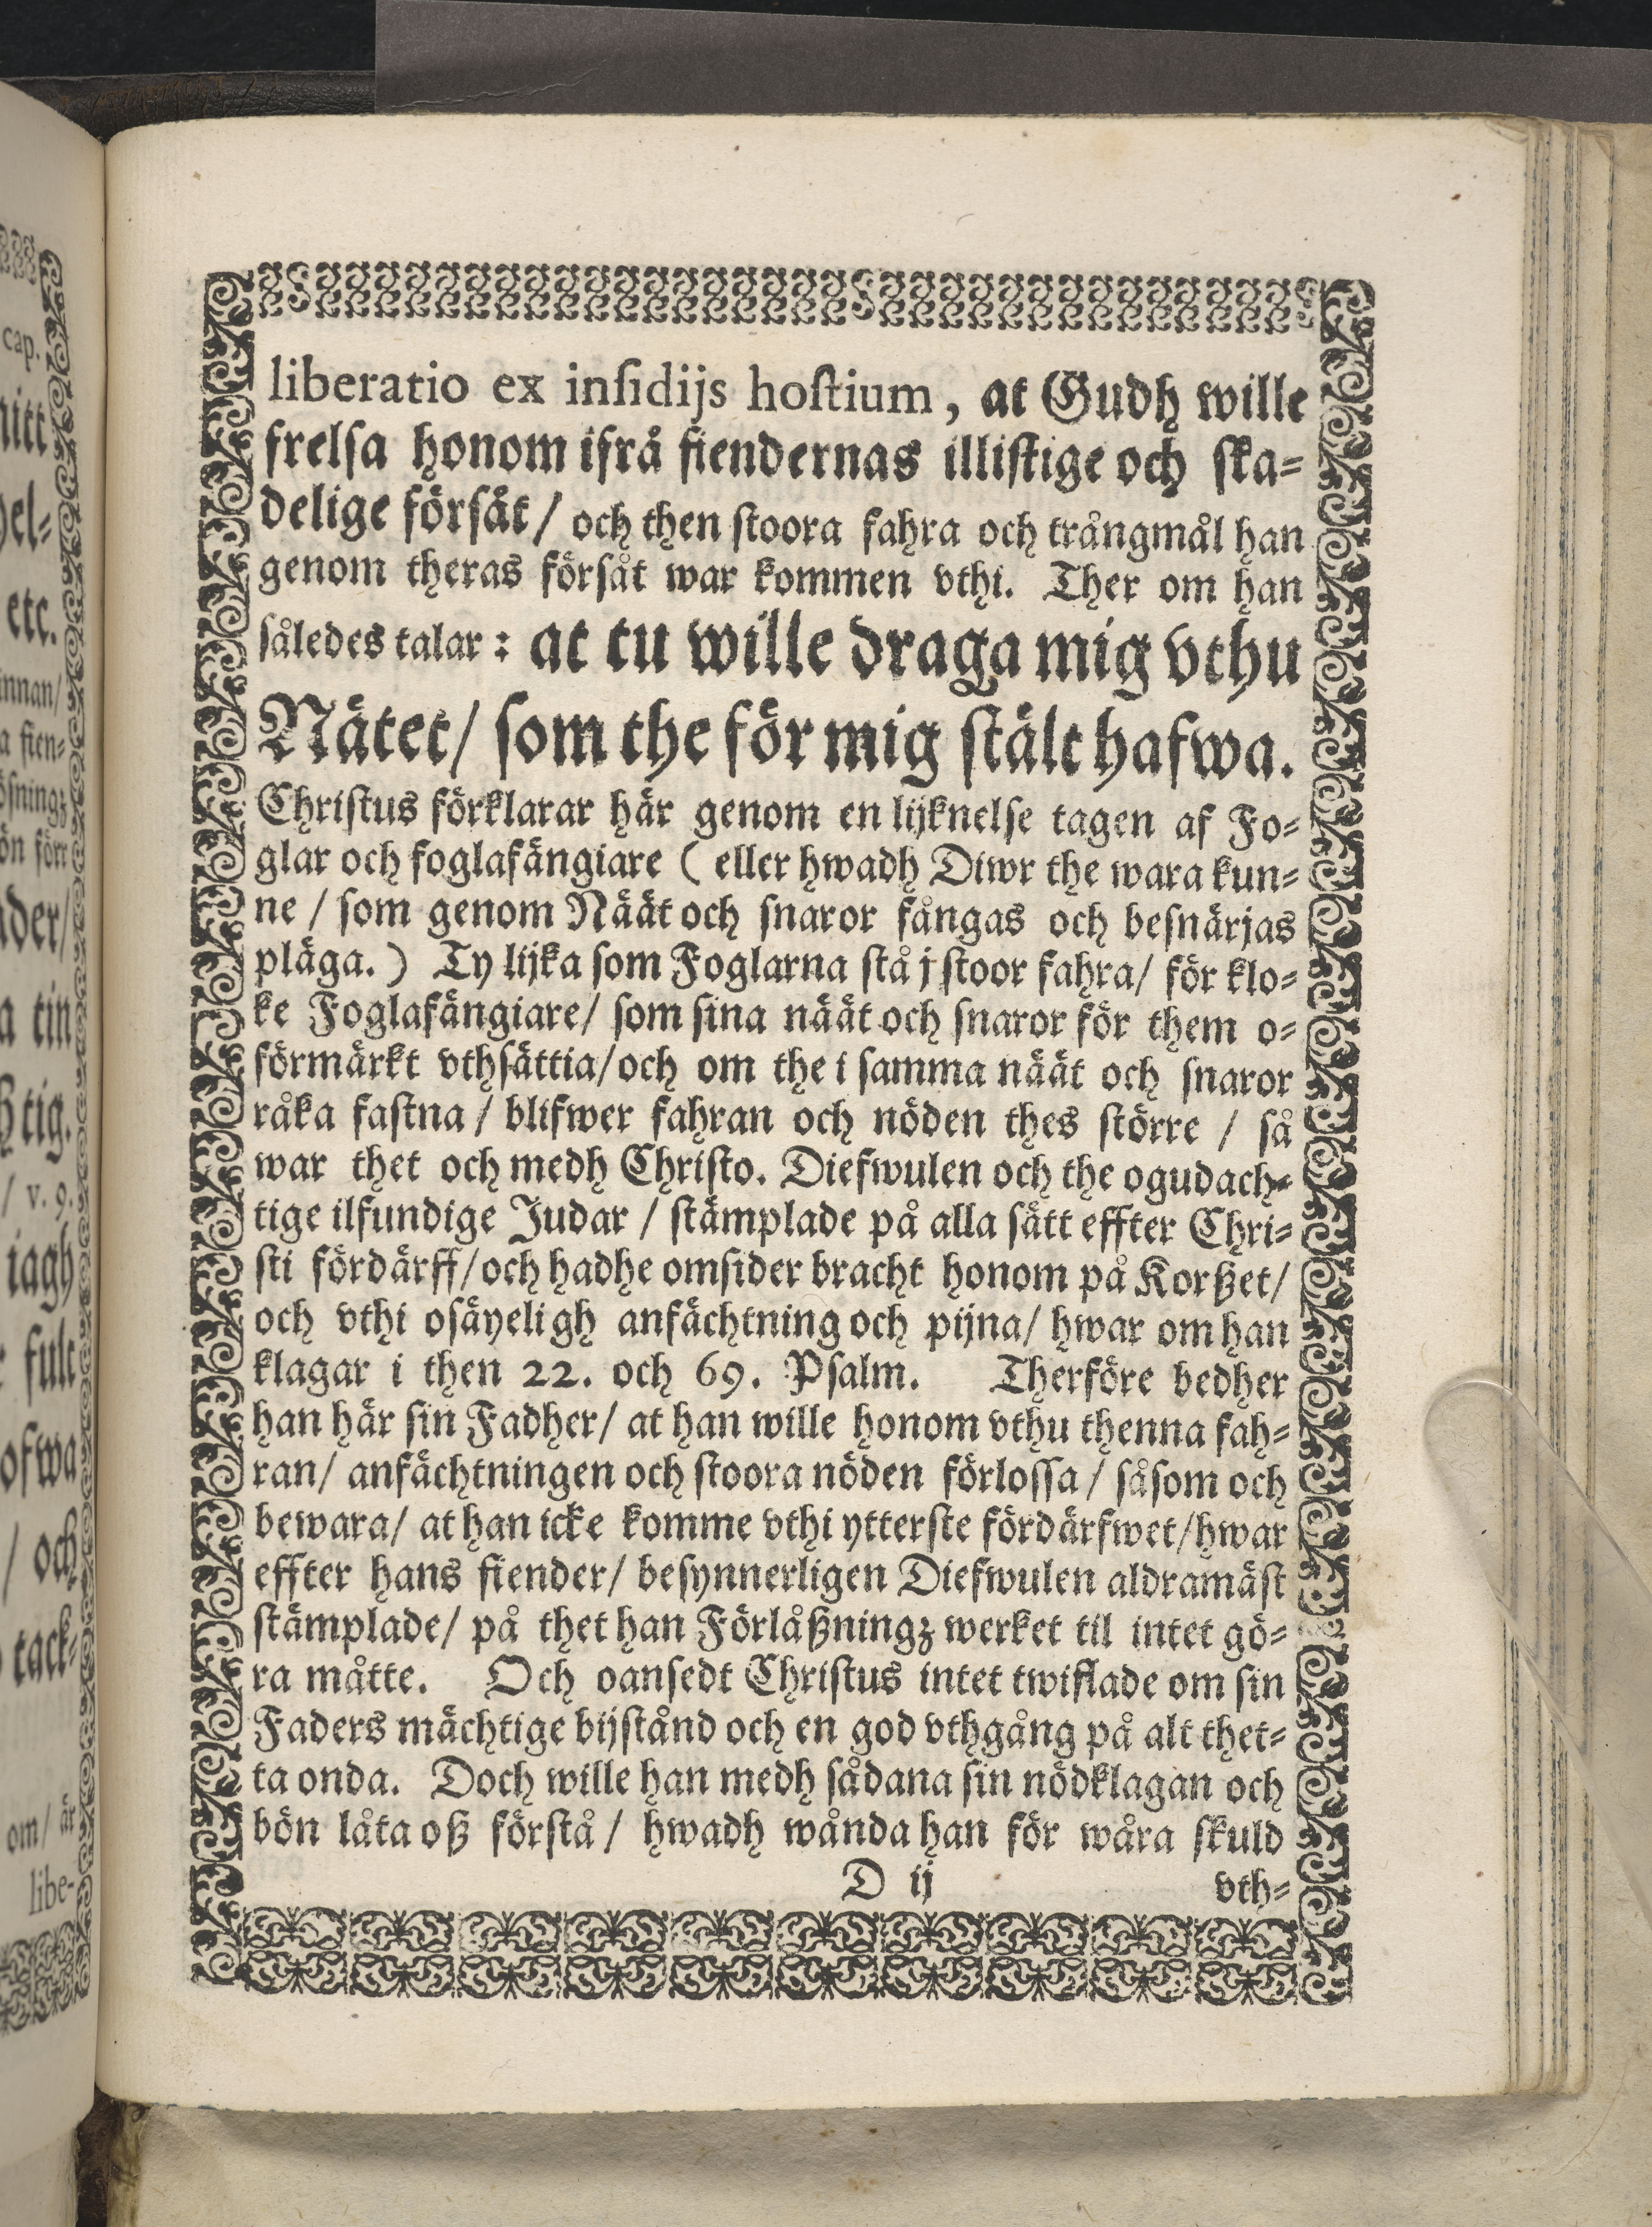 liberatio ex insidijs hostium, at Gudh wille
frelsa honom ifrå fiendernas illistige och ska=
delige försät / och then stoora fahra och trångmål han
genom theras försåt war kommen vthi. Ther om han
således talar : at tu wille draga mig vthu
Nätet / som the för mig stält hafwa.
Christus förklarar här genom en lijknelse tagen af Fo=
glar och foglafängiare ( eller hwadh Diwr the wara kun=
ne / som genom Näät och snaror fångas och besnärjas
pläga. ) Ty lijka som Foglarna stå j stoor fahra / för klo=
ke Foglafängiare / som sina näät och snaror för them o=
förmärkt vthsättia / och om the i samma näät och snaror
råka fastna / blifwer fahran och nöden thes större / så
war thet och medh Christo. Diefwulen och the ogudach=
tige ilfundige Judar / stämplade på alla sätt effter Chri=
sti fördärff / och hadhe omsider bracht honom på Korßet /
och vthi osäyeligh anfächtning och pijna / hwar om han
klagar i then 22. och 69. Psalm. Therföre bedher
han här sin Fadher / at han wille honom vthu thenna fah=
ran / anfächtningen och stoora nöden förlossa / såsom och
bewara / at han icke komme vthi ytterste fördärfwet / hwar
effter hans fiender / besynnerligen Diefwulen aldramäst
stämplade / på thet han Förlåßningz werket til intet gö=
ra måtte. Och oansedt Christus intet twiflade om sin
Faders mächtige bijstånd och en god vthgång på alt thet=
ta onda. Doch wille han medh sådana sin nödklagan och
bön låta oß förstå / hwadh wånda han för wåra skuld
D ij vth=